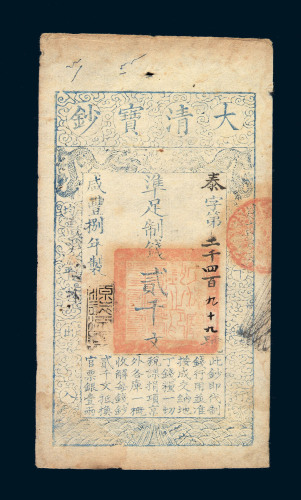 大清寶鈔
泰字第 千四百九十九
準足制錢貳千文
咸豐捌年製
此鈔即代制
錢行用並准
按成交納地
丁錢糧一切
稅課捐項京
外各庫一概
收解每錢鈔
貳千文抵換
官票銀壹兩